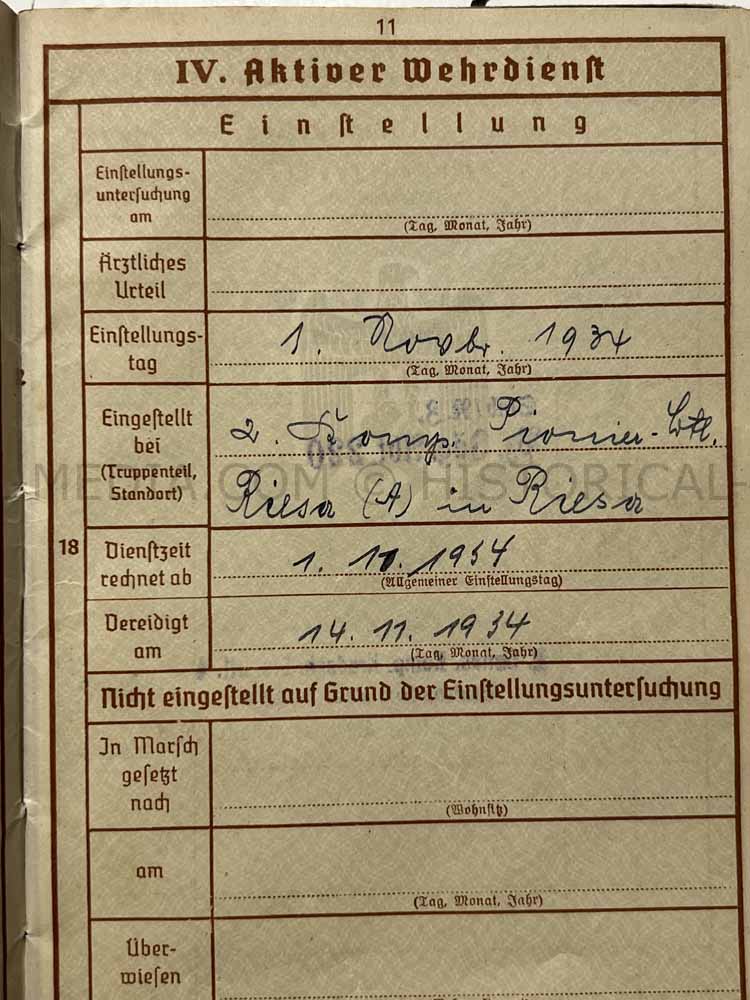 11
IV. Aktiver Wehrdienst
Einstellung
Einstellungs-
untersuchung
am
(Tag, Monat, Jahr)
Ärztliches
Urteil
Einstellungs-
tag
1. Novbr. 1934
(Tag, Monat, Jahr)
Eingestellt
bei
(Truppenteil,
Standort)
2. Komp. Pionier-Btl.
Riesa (A) in Riesa
MEDIA.COM © HISTORICAL-
18
Dienstzeit
rechnet ab
1. 10. 1934
(Allgemeiner Einstellungstag)
Vereidigt
am
14. 11. 1934
(Tag, Monat, Jahr)
Nicht eingestellt auf Grund der Einstellungsuntersuchung
In Marsch
gesetzt
nach
(Wohnsitz)
am
(Tag, Monat, Jahr)
Über-
wiesen